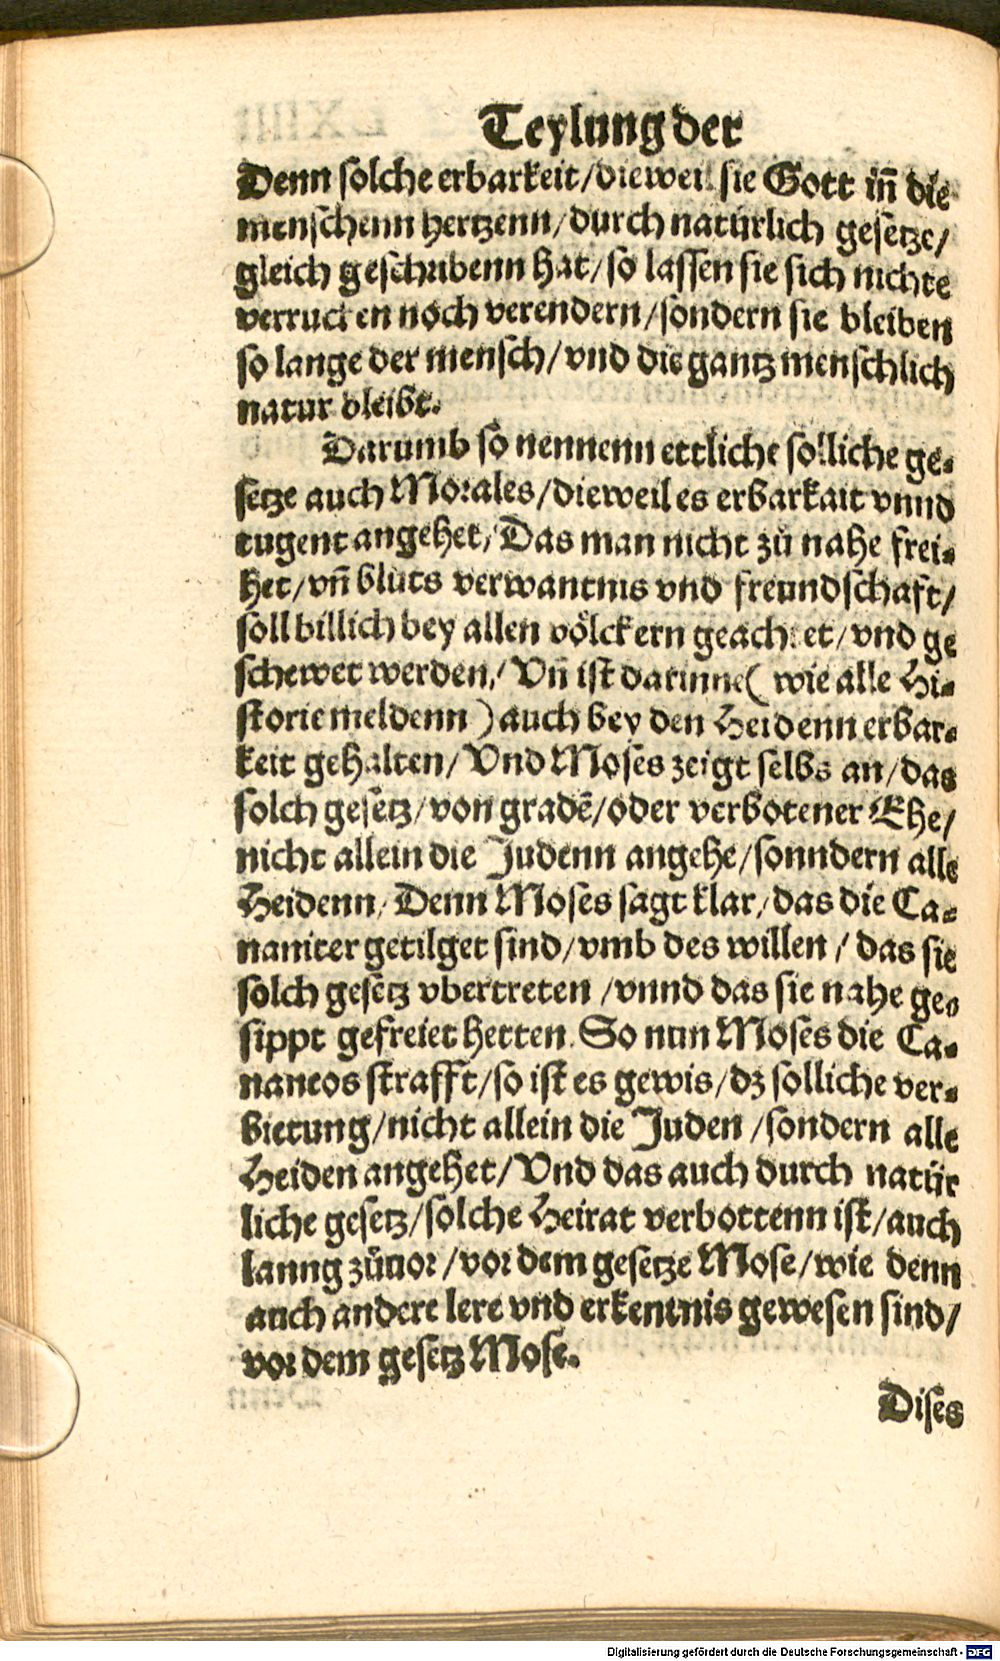 Teylung der
Denn solche erbarkeit/dieweil sie Gott iñ die
menschenn hertzenn/durch natürlich gesetze/
gleich geschribenn hat/so lassen sie sich nichte
verrucken noch verendern/sondern sie bleiben
so lange der mensch/vnd die gantz menschlich
natur bleibt.
Darumb so nennenn ettliche solliche ge-
setze auch Morales/dieweil es erbarkait vnnd
tugent angehet/Das man nicht zů nahe frei-
het/vñ bluts verwantnis vnd freundschaft/
soll billich bey allen völckern geachtet/vnd ge
schewet werden/Vñ ist darinne( wie alle Hi-
storie meldenn )auch bey den Heidenn erbar-
keit gehalten/Vnd Moses zeigt selbs an/das
solch gesetz/von gradē/oder verbotener Ehe/
nicht allein die Judenn angehe/sonndern alle
Heidenn/Denn Moses sagt klar/das die Ca-
naniter getilget sind/vmb des willen/das sie
solch gesetz vbertreten/vnnd das sie nahe ge-
sippt gefreiet hetten. So nun Moses die Ca-
naneos strafft/so ist es gewis/dz solliche ver-
bietung/nicht allein die Juden/sondern alle
Heiden angehet/Vnd das auch durch natür
liche gesetz/solche Heirat verbottenn ist/auch
lanng zůuor/vor dem gesetze Mose/wie denn
auch andere lere vnd erkentnis gewesen sind/
vor dem gesetz Mose.
Dises
Digitalisierung gefördert durch die Deutsche Forschungsgemeinschaft - DFG